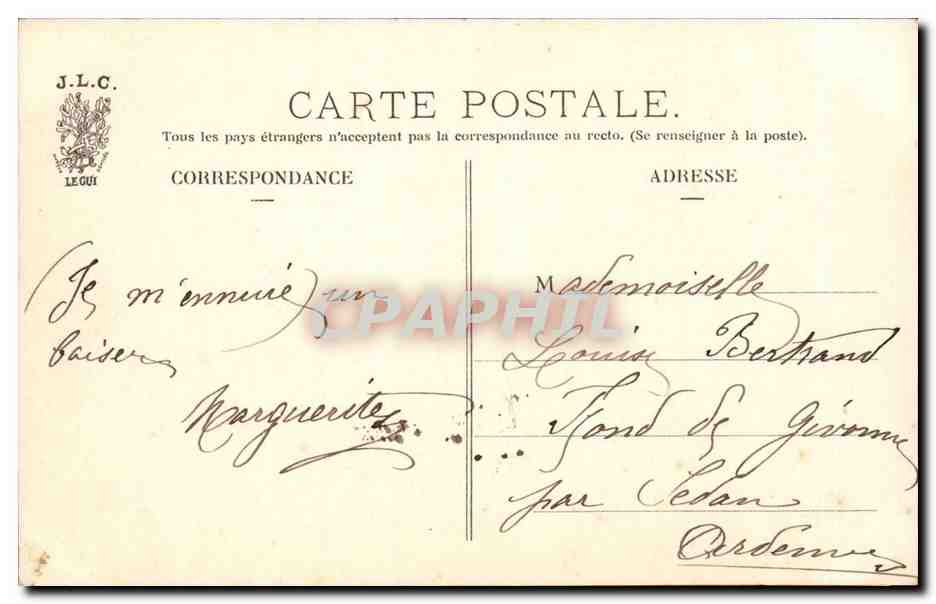 J.L.C.
LE GUI
CARTE POSTALE.
Tous les pays étrangers n'acceptent pas la correspondance au recto. (Se renseigner à la poste).
CORRESPONDANCE
(Je m'ennuie) un
baiser
Marguerite
ADRESSE
Mademoiselle
Louise Bertrand
Fond de Givonne
par Sedan
Ardennes
CPAPHIL